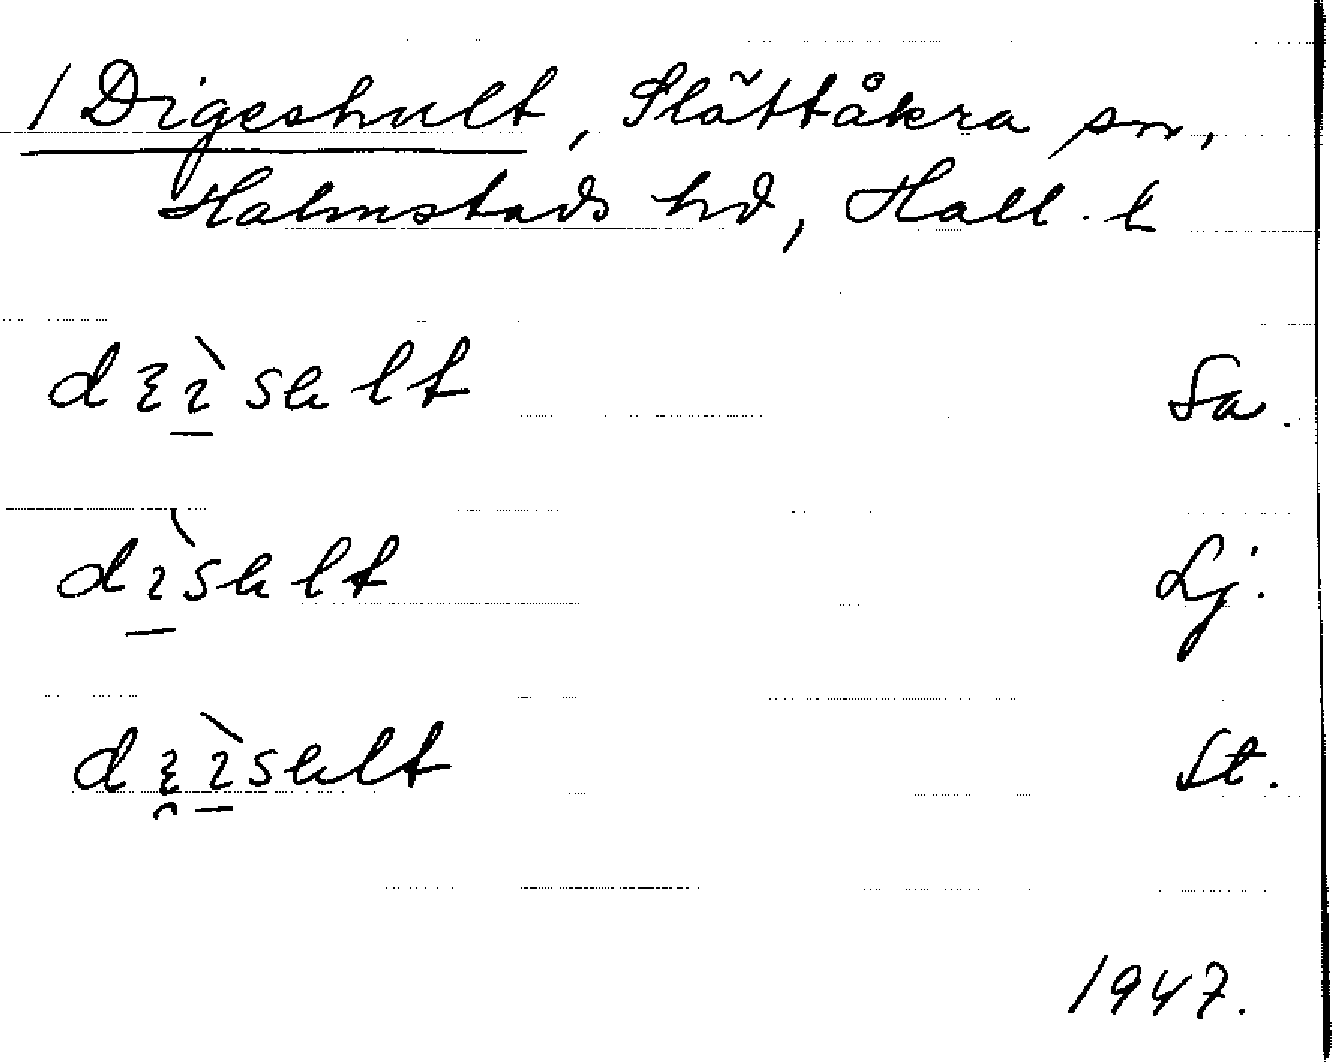 / Digeshult, Slättåkra sn,
Halmstads hd, Hall. l
dɛɪ̠̀salt Sa.
dɪ̠̀salt Lj.
dɛ̯ɪ̠̀salt St.
1947.